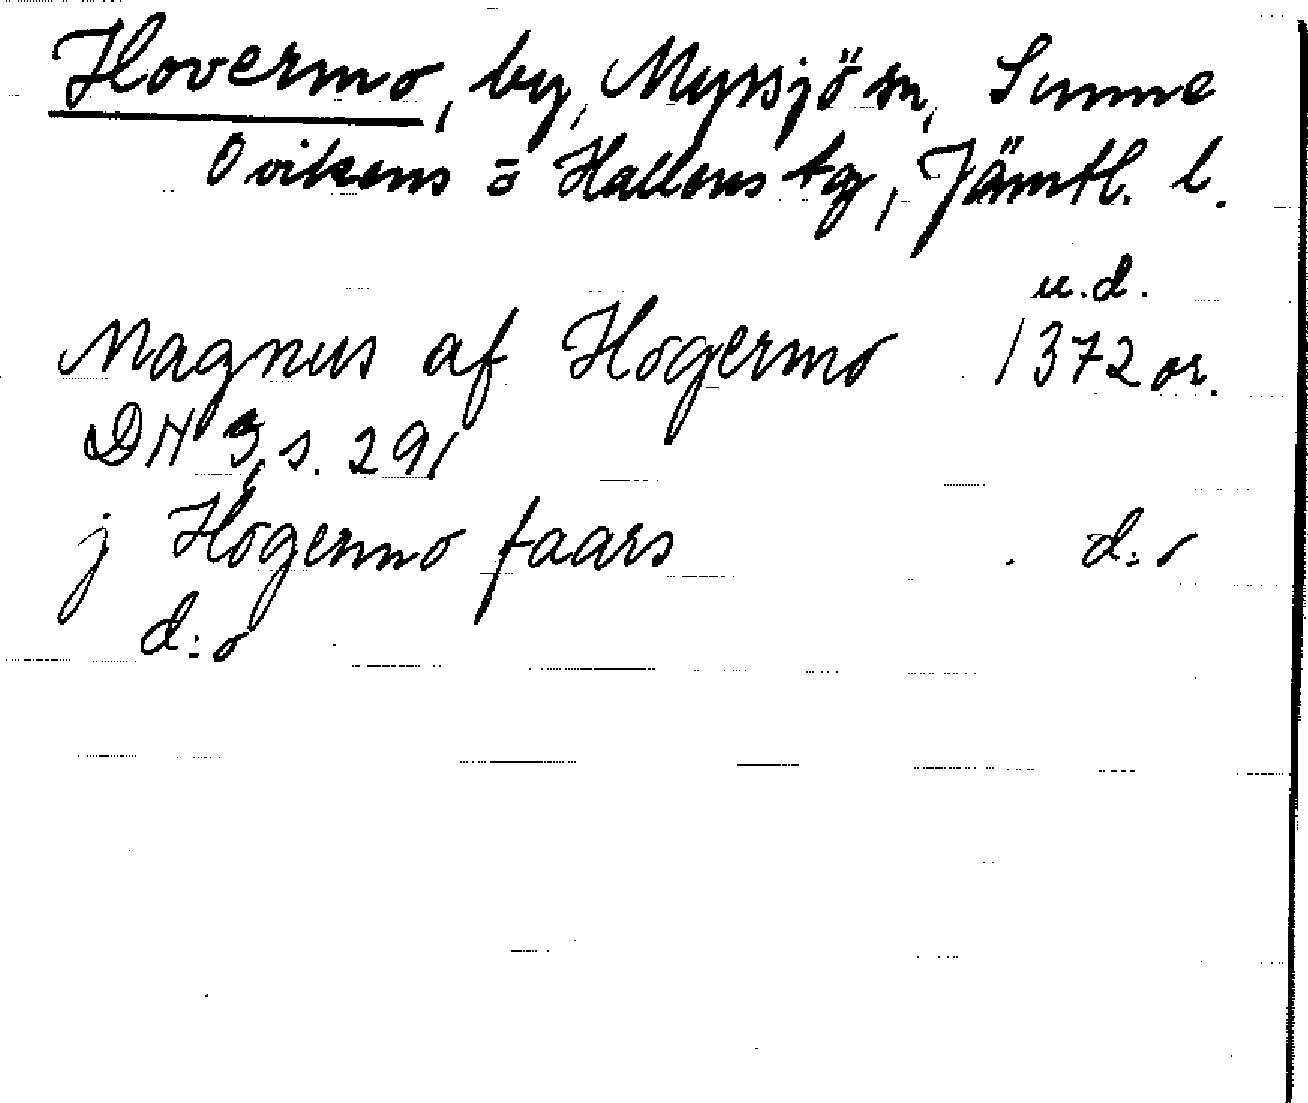 Hovermo, by, Myssjö sn, Sunne
Ovikens o Hallens tg, Jämtl. l.
u.d.
Magnus af Hogermo 1372 or.
DN 3, s. 291
j Hogermo faars d:o
d:o